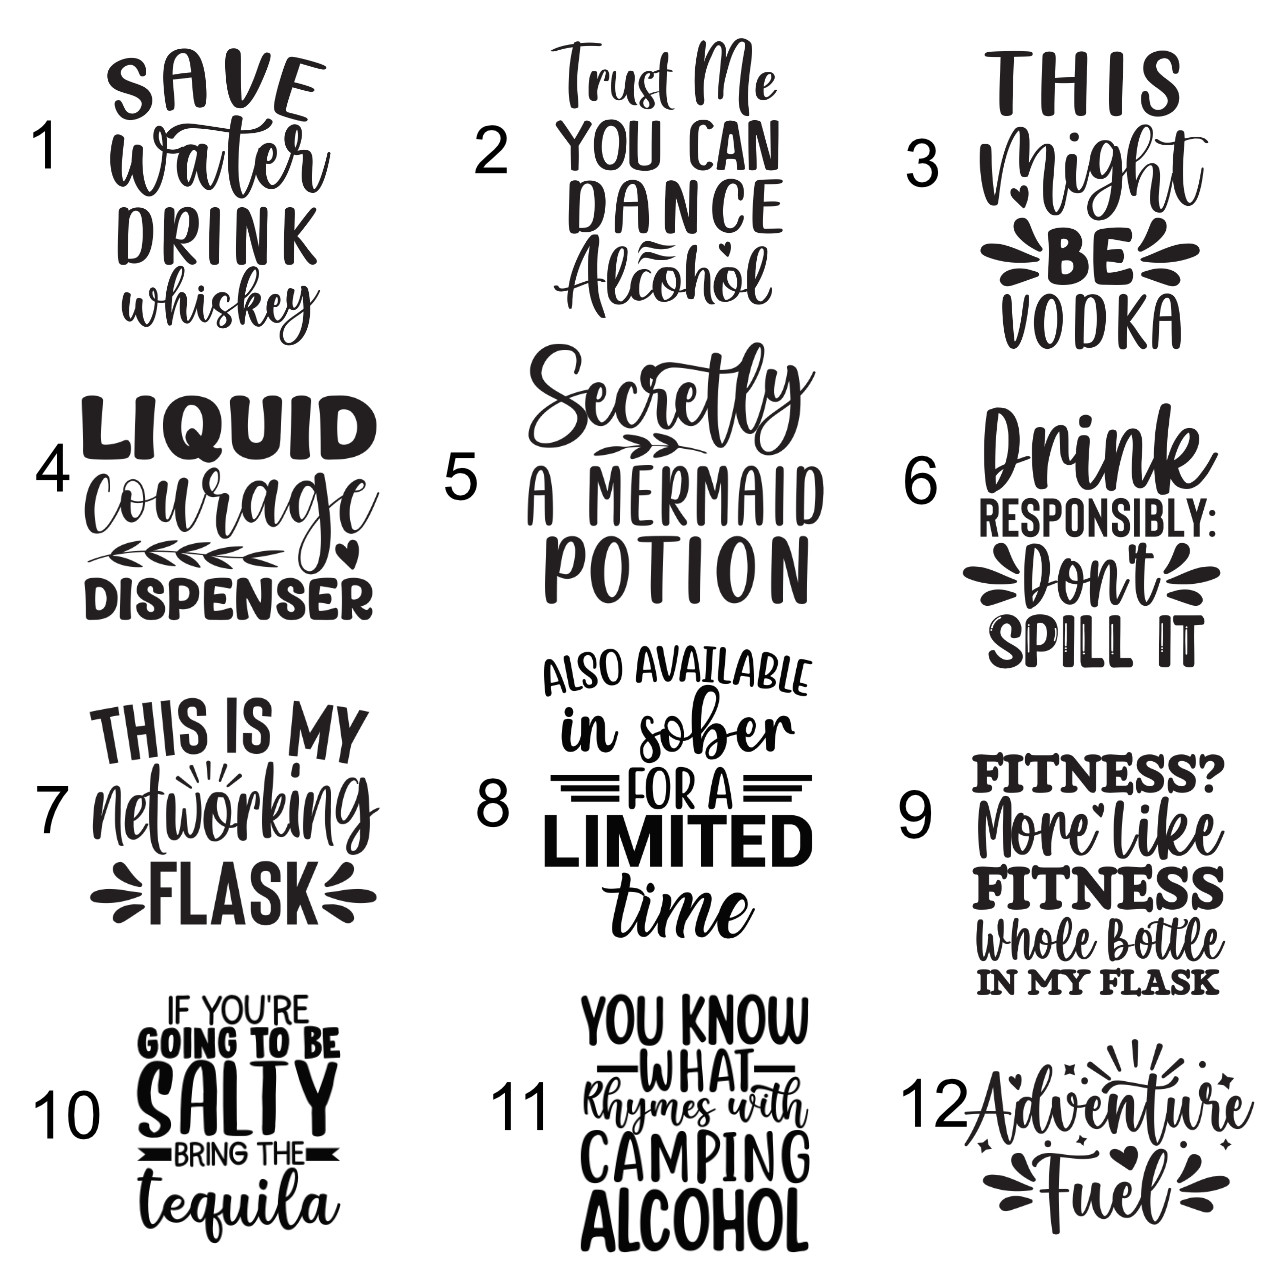 1
SAVE
water
DRINK
whiskey
2
Trust Me
YOU CAN
DANCE
Alcohol
3
THIS
Might
BE
VODKA
4
LIQUID
courage
DISPENSER
5
Secretly
A MERMAID
POTION
6
Drink
RESPONSIBLY:
Don't
SPILL IT
7
THIS IS MY
networking
FLASK
8
ALSO AVAILABLE
in sober
FOR A
LIMITED
time
9
FITNESS?
More like
FITNESS
Whole Bottle
IN MY FLASK
10
IF YOU'RE
GOING TO BE
SALTY
BRING THE
tequila
11
YOU KNOW
WHAT
Rhymes with
CAMPING
ALCOHOL
12
Adventure
Fuel